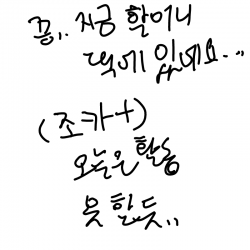 끙,. 지금 할머니
댁에 있네요...
(조카+)
오늘은 활동
못 할듯,,